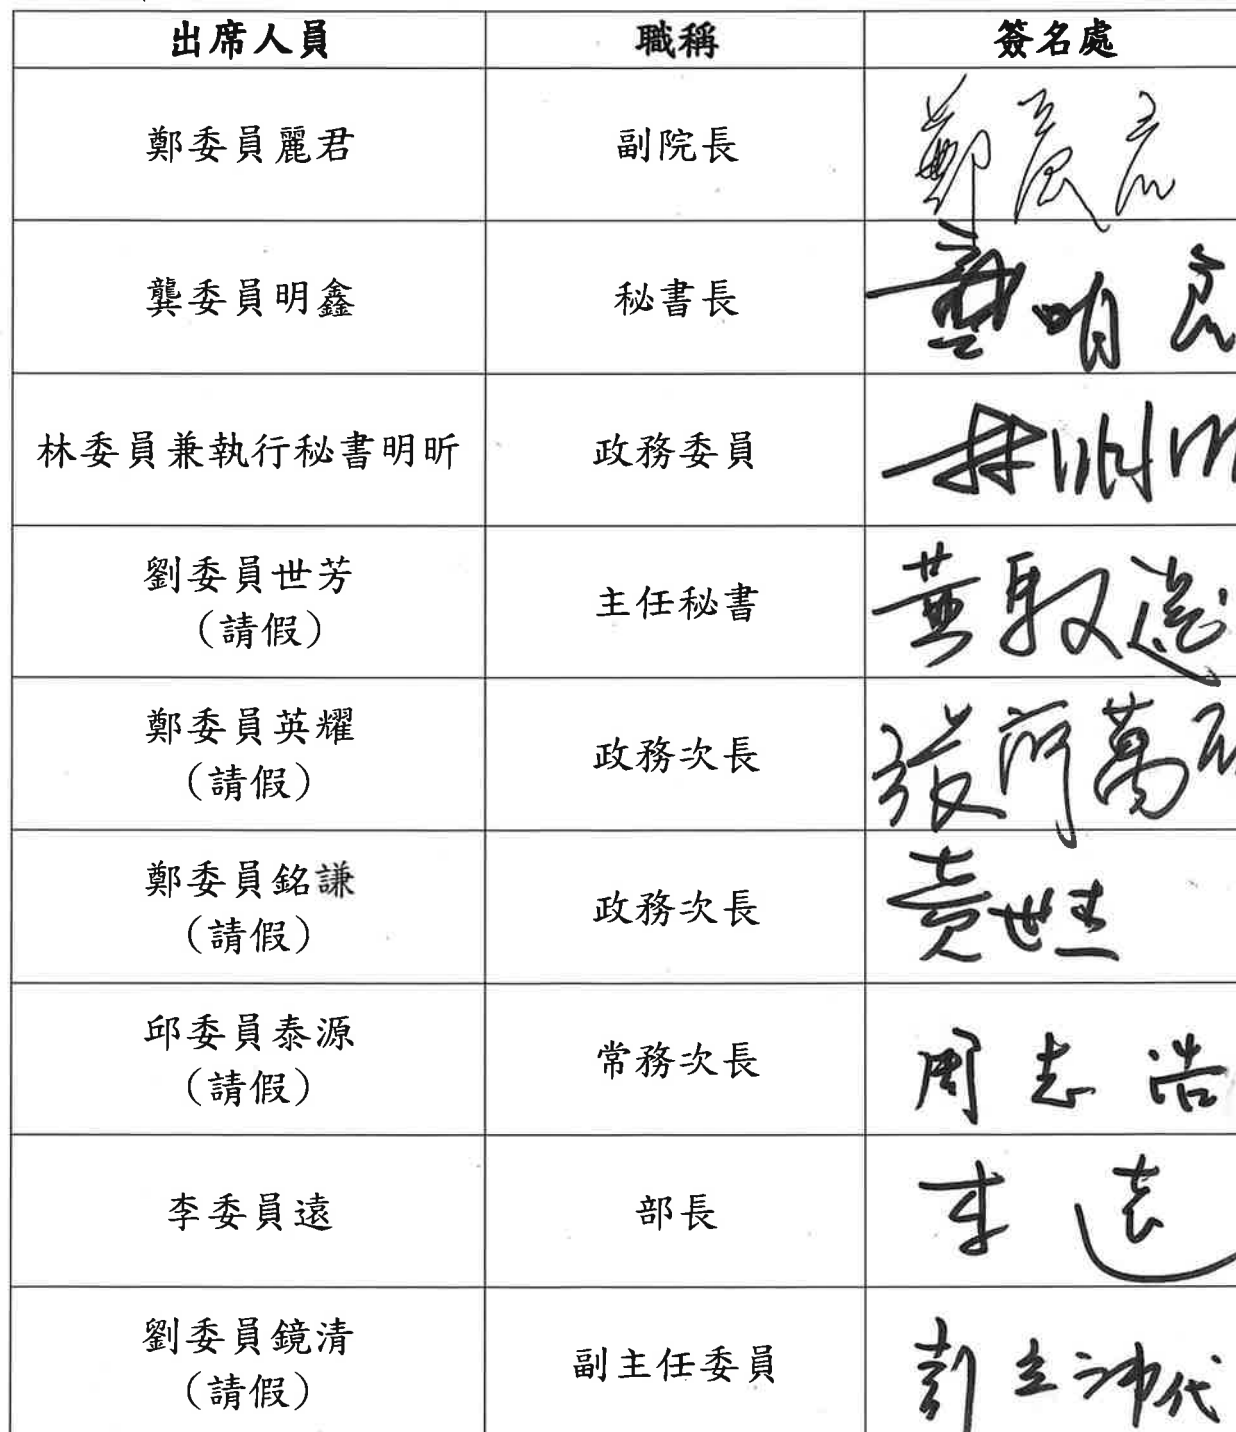 出席人員 職稱 簽名處
鄭委員麗君 副院長 鄭麗君
龔委員明鑫 秘書長 龔明鑫
林委員兼執行秘書明昕 政務委員 林明昕
劉委員世芳
(請假)
主任秘書
鄭委員英耀
(請假)
政務次長 張廖萬堅
鄭委員銘謙
(請假)
政務次長 黃世杰
邱委員泰源
(請假)
常務次長 周志浩
李委員遠 部長 李遠
劉委員鏡清
(請假)
副主任委員 彭立沛代